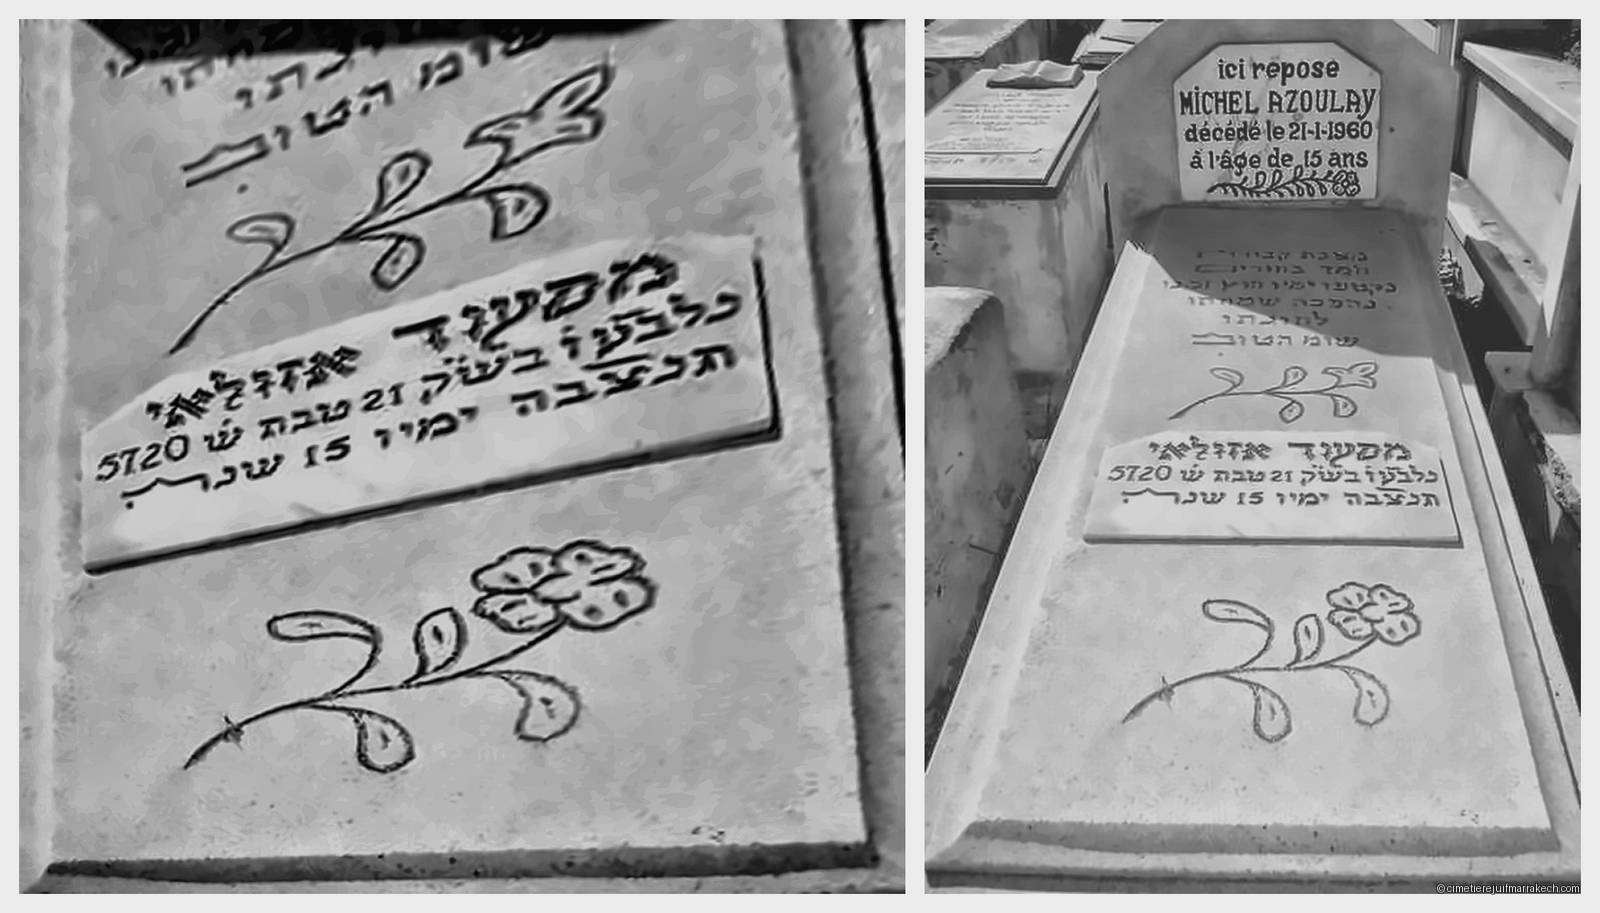 לתוגתו
שומ הטוב
מסעוד אזולאי
נלבעו בשק 21 טבת ש 5720
תנצבה ימיו 15 שנה
ici repose
MICHEL AZOULAY
décédé le 21-1-1960
à l'âge de 15 ans
מצבת קבורת
חמד בחורים
נקטעו ימיו חוץ זמנו
נהפכה שמחתו
לתוגתו
שומ הטוב
מסעוד אזולאי
נלבעו בשק 21 טבת ש 5720
תנצבה ימיו 15 שנה
©cimetierejuifmarrakech.com